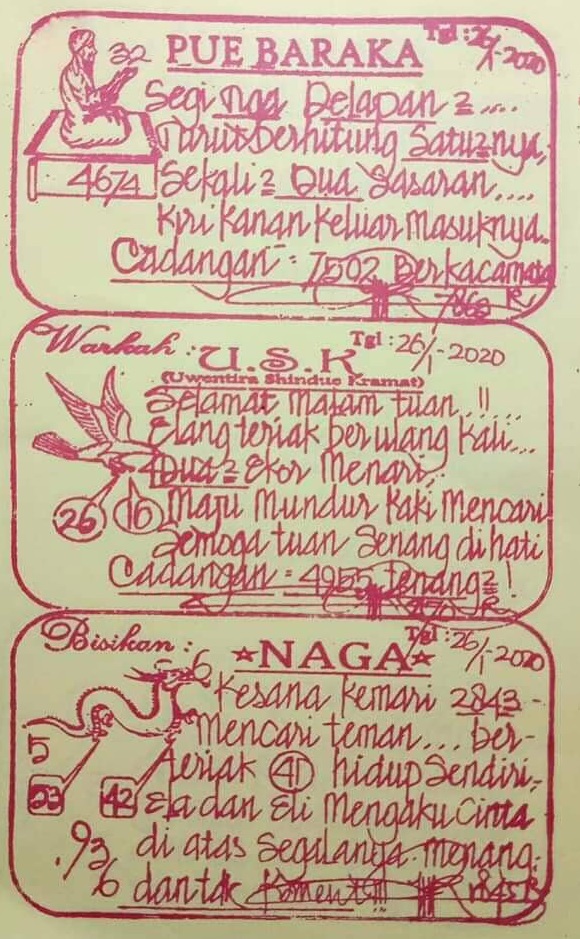 Tgl : 26/1-2020
32 PUE BARAKA
Segi nga Delapan 2 ....
Turut berhitung Satu2nya,
4674 Sekali2 Dua Sasaran....
Kiri kanan keluar masuknya.
Cadangan : 7502 Berkacamata
Warkah : U.S.K Tgl : 26/1-2020
(Uwentira Shinduo Kramat)
Selamat malam tuan.!!...
Elang teriak berulang kali...
Dua2 Ekor Menari,
26 16 Maju Mundur Kaki Mencari
Semoga tuan Senang di hati
Cadangan : 4955 tenang2 !
Bisikan : Tgl : 26/1-2020
NAGA
6 Kesana Kemari 2843 -
Mencari teman... ber-
5 teriak 41 hidup Sendiri,
23 42 Ela dan Eli Mengaku Cinta
.93 di atas Segalanya. Menang.
6 dan tak Koment!!!